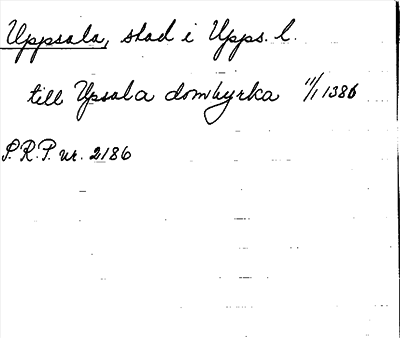 Uppsala, stad i Upps. l.
till Ypsala domkyrka 11/1 1386
S.R.P. nr. 2186